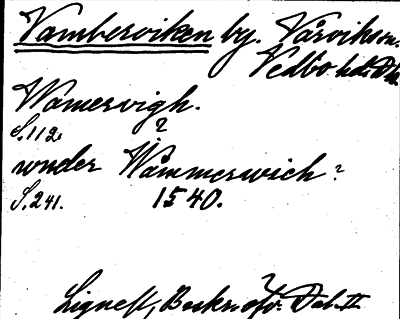 Vamberviken by. Vårviks sn.
Vedbo hd. Dls.
Wamervigh.
S. 112. ?
wnder Wåmmerwich?
S. 241. 1540.
Lignell, Beskr. ofv. Dal. II